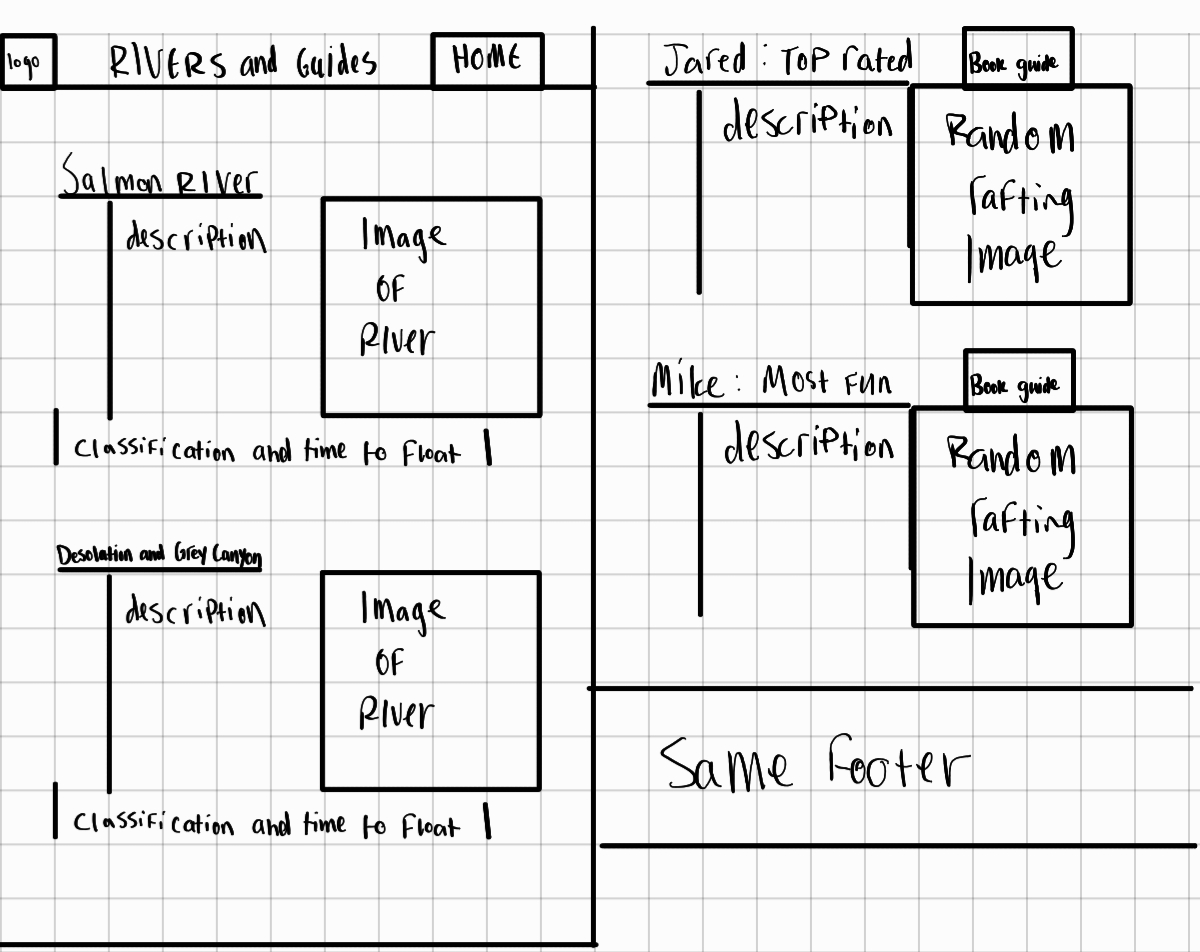 logo
RIVERS and Guides
HOME
Salmon RIver
description
Image
OF
RIver
Classification and time to Float
Desolation and Grey Canyon
description
Image
OF
RIver
Classification and time to Float
Jared : Top rated
Book guide
description
Random
rafting
Image
Mike : Most Fun
Book guide
description
Random
rafting
Image
Same Footer